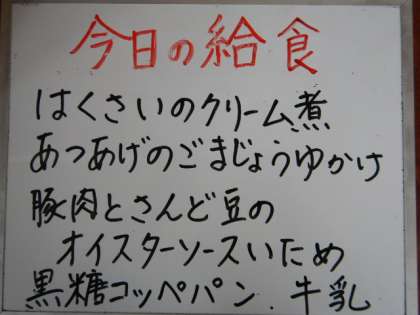 今日の給食
はくさいのクリーム煮
あつあげのごまじょうゆかけ
豚肉とさんど豆の
オイスターソースいため
黒糖コッペパン．牛乳